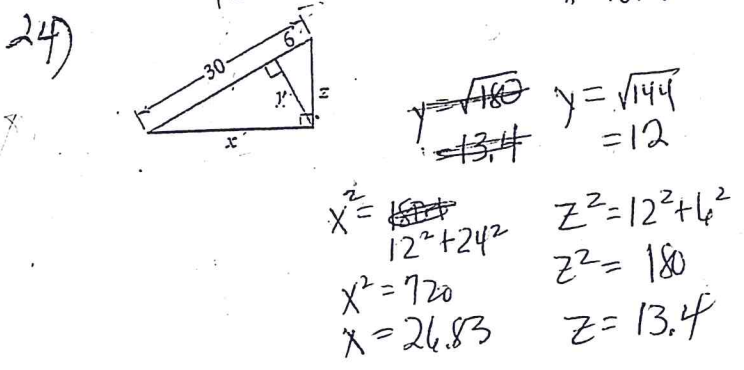 24)
30
6
y
z
x
y = √180
= 13.4
y = √144
= 12
x² =
12² + 24²
x² = 720
x = 26.83
z² = 12² + 6²
z² = 180
z = 13.4